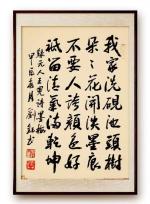 我家洗硯池頭樹
朵々花開淡墨痕
不要人誇顏色好
祇留清氣滿乾坤
錄元人王冕詩墨梅